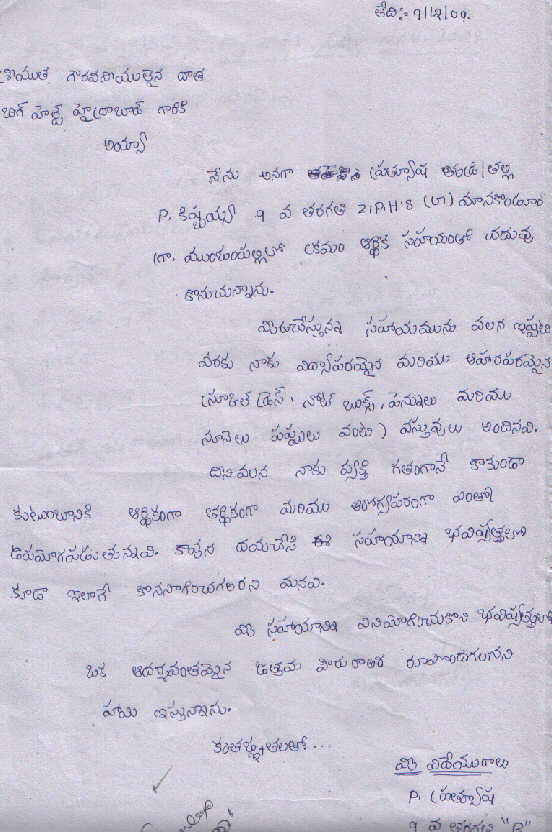 తేది:- 9/12/00.
శ్రీయుత గౌరవనీయులైన దాత
బిగ్ హెల్ప్ హైద్రాబాద్ గారికి
అయ్యా
నేను అనగా ప్రత్యూష తండ్రి/తల్లి
P. కిష్టయ్య 9 వ తరగతి Z.P.H.S (గ) మానకొండూర్
గ్రా. ముంజంపల్లిలో ఆర్థిక సహాయంతో చదువు
కొనుచున్నాను.
మీరుచేస్తున్న సహాయమును వలన ఇప్పటి
వరకు నాకు విద్యాపరమైన మరియు ఆహారపరమైన
(స్కూల్ డ్రెస్, నోట్ బుక్స్, పెన్నులు మరియు
నూనెలు పప్పులు వంటి) వస్తువులు అందినవి.
దీనివలన నాకు వ్యక్తి గతంగానే కాకుండా
కుటుంబానికి ఆర్థికంగా మరియు ఆరోగ్యపరంగా ఎంతో
ఉపయోగపడుతున్నవి. కావున దయచేసి ఈ సహాయాన్ని భవిష్యత్తులో
కూడా ఇలాగే కొనసాగించగలరని మనవి.
మీ సహాయాన్ని వినియోగించుకొని భవిష్యత్తులో
ఒక ఆదర్శవంతమైన ఉత్తమ పౌరురాలిగా రూపొందుగలనని
హామి ఇస్తున్నాను.
కృతజ్ఞతలతో...
మీ విధేయురాలు
P. ప్రత్యూష
9 వ తరగతి "B"